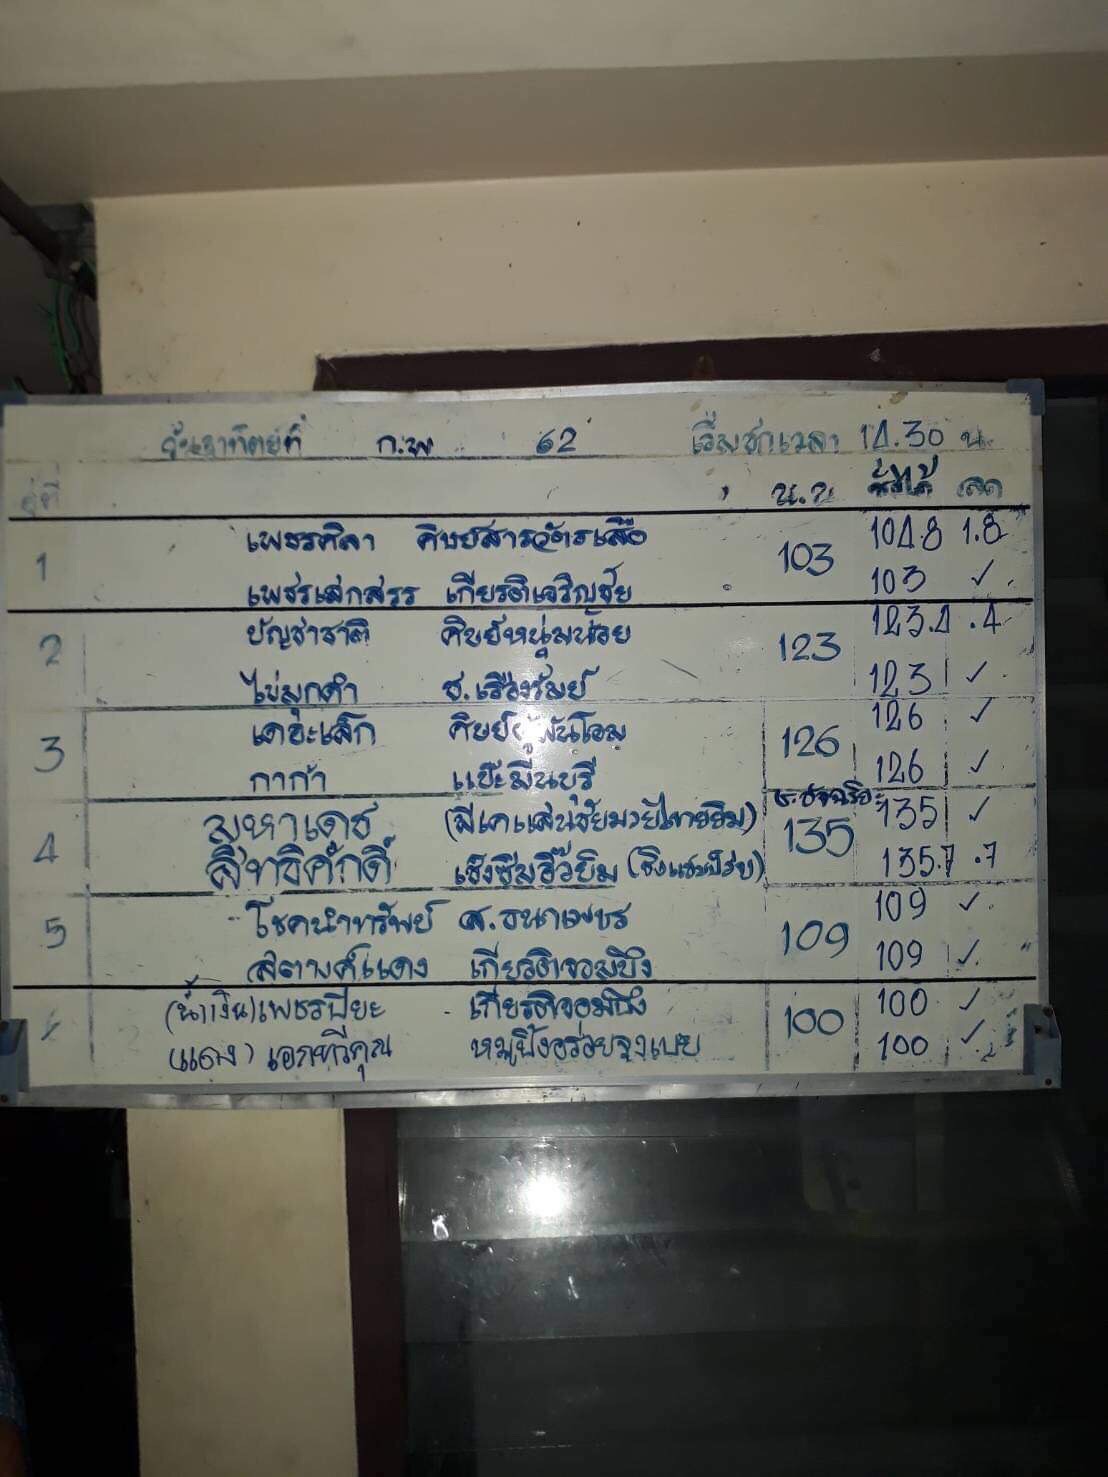 วันอาทิตย์ที่ ก.พ 62 เริ่มชกเวลา 14.30 น.
คู่ที่ น.น. ชั่งได้ ลด
1 เพชรศิลา ศิษย์สารวัตรเสือ 103 104.8 1.8
เพชรเสกสรร เกียรติเจริญชัย 103 ✓
2 บัญชาชาติ ศิษย์หนุ่มน้อย 123 123.4 .4
ไข่มุกดำ ช.เรืองรัมย์ 123 ✓
3 เดอะเล็ก 126 126 ✓
กาก้า แป๊ะมีนบุรี 126 ✓
4 มหาเดช (มีเดแสนชัยมวยไทยยิม) 135 135 ✓
สิทธิศักดิ์ 135.7 .7
5 โชคนำทรัพย์ ส.ธนาเพชร 109 109 ✓
สตางค์แดง เกียรติจอมบึง 109 ✓
(น้ำเงิน) เพชรปิยะ เกียรติจอมบึง 100 100 ✓
(แดง) เอกทวีคูณ หมูปิ้งอร่อยจุงเบย 100 ✓